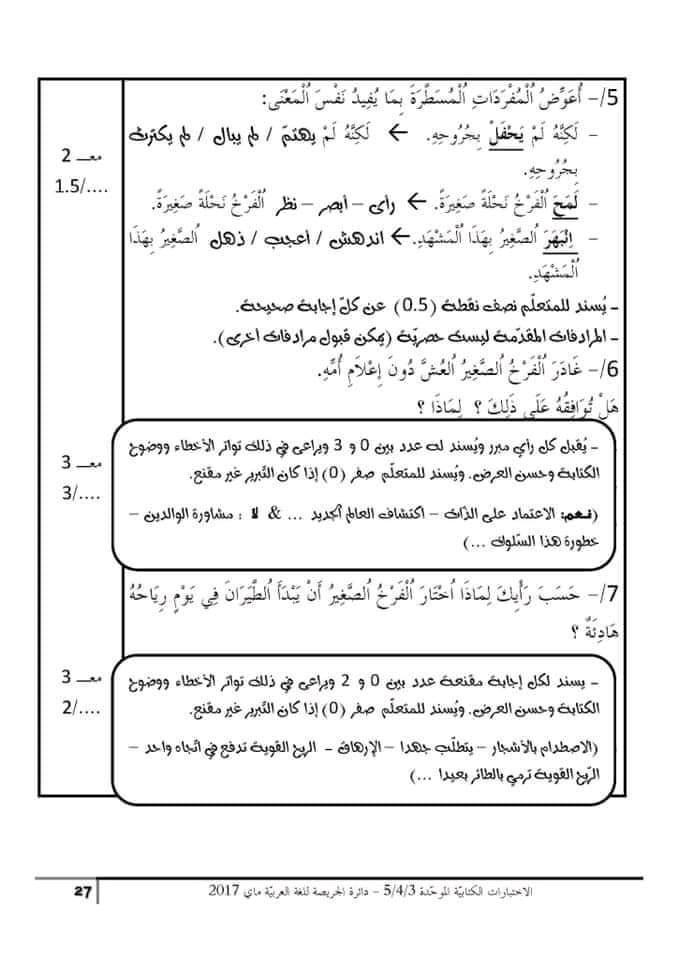 5/- أُعَوِّضُ اُلْمُفْرَدَاتِ اُلْمُسَطَّرَةَ بِمَا يُفِيدُ نَفْسَ اُلْمَعْنَى:
- لَكِنَّهُ لَمْ يَحْفَلْ بِجُرُوحِهِ. ← لَكِنَّهُ لَمْ يهتمّ / لم يبال / لم يكترث
بِجُرُوحِهِ.
معـ 2
1.5/....
- لَمَحَ اُلْفَرْخُ نَحْلَةً صَغِيرَةً. ← رأى – أبصر – نظر اُلْفَرْخُ نَحْلَةً صَغِيرَةً.
- اِنْبَهَرَ اُلصَّغِيرُ بِهَذَا اُلْمَشْهَدِ. ← اندهش / أعجب / ذهل اُلصَّغِيرُ بِهَذَا
اُلْمَشْهَدِ.
- يُسند للمتعلّم نصف نقطة (0.5) عن كلّ إجابة صحيحة.
- المرادفات المقدّمة ليست حصريّة (يمكن قبول مرادفات أخرى).
6/- غَادَرَ اُلْفَرْخُ اُلصَّغِيرُ اُلْعُشَّ دُونَ إِعْلَامِ أُمِّهِ.
هَلْ تُوَافِقُهُ عَلَى ذَلِكَ ؟ لِمَاذَا ؟
معـ 3
3/....
- يُقبل كل رأي مبرر ويُسند له عدد بين 0 و 3 ويراعى في ذلك تواتر الأخطاء ووضوح
الكتابة وحسن العرض. ويُسند للمتعلّم صفر (0) إذا كان التّبرير غير مقنع.
(نعم: الاعتماد على الذّات – اكتشاف العالم الجديد ... & لا : مشاورة الوالدين –
خطورة هذا السّلوك ...)
7/- حَسَبَ رَأْيِكَ لِمَاذَا اُخْتَارَ اُلْفَرْخُ اُلصَّغِيرُ أَنْ يَبْدَأَ اُلطَّيَرَانَ فِي يَوْمٍ رِيَاحُهُ
هَادِئَةٌ ؟
معـ 3
2/....
- يسند لكل إجابة مقنعة عدد بين 0 و 2 ويراعى في ذلك تواتر الأخطاء ووضوح
الكتابة وحسن العرض. ويُسند للمتعلّم صفر (0) إذا كان التّبرير غير مقنع.
(الاصطدام بالأشجار – يتطلّب جهدا – الإرهاق – الريح القوية تدفع في اتّجاه واحد –
الرّيح القوية ترمي بالطائر بعيدا ...)
الاختبارات الكتابيّة الموحّدة 5/4/3 – دائرة الجريصة للغة العربيّة ماي 2017
27